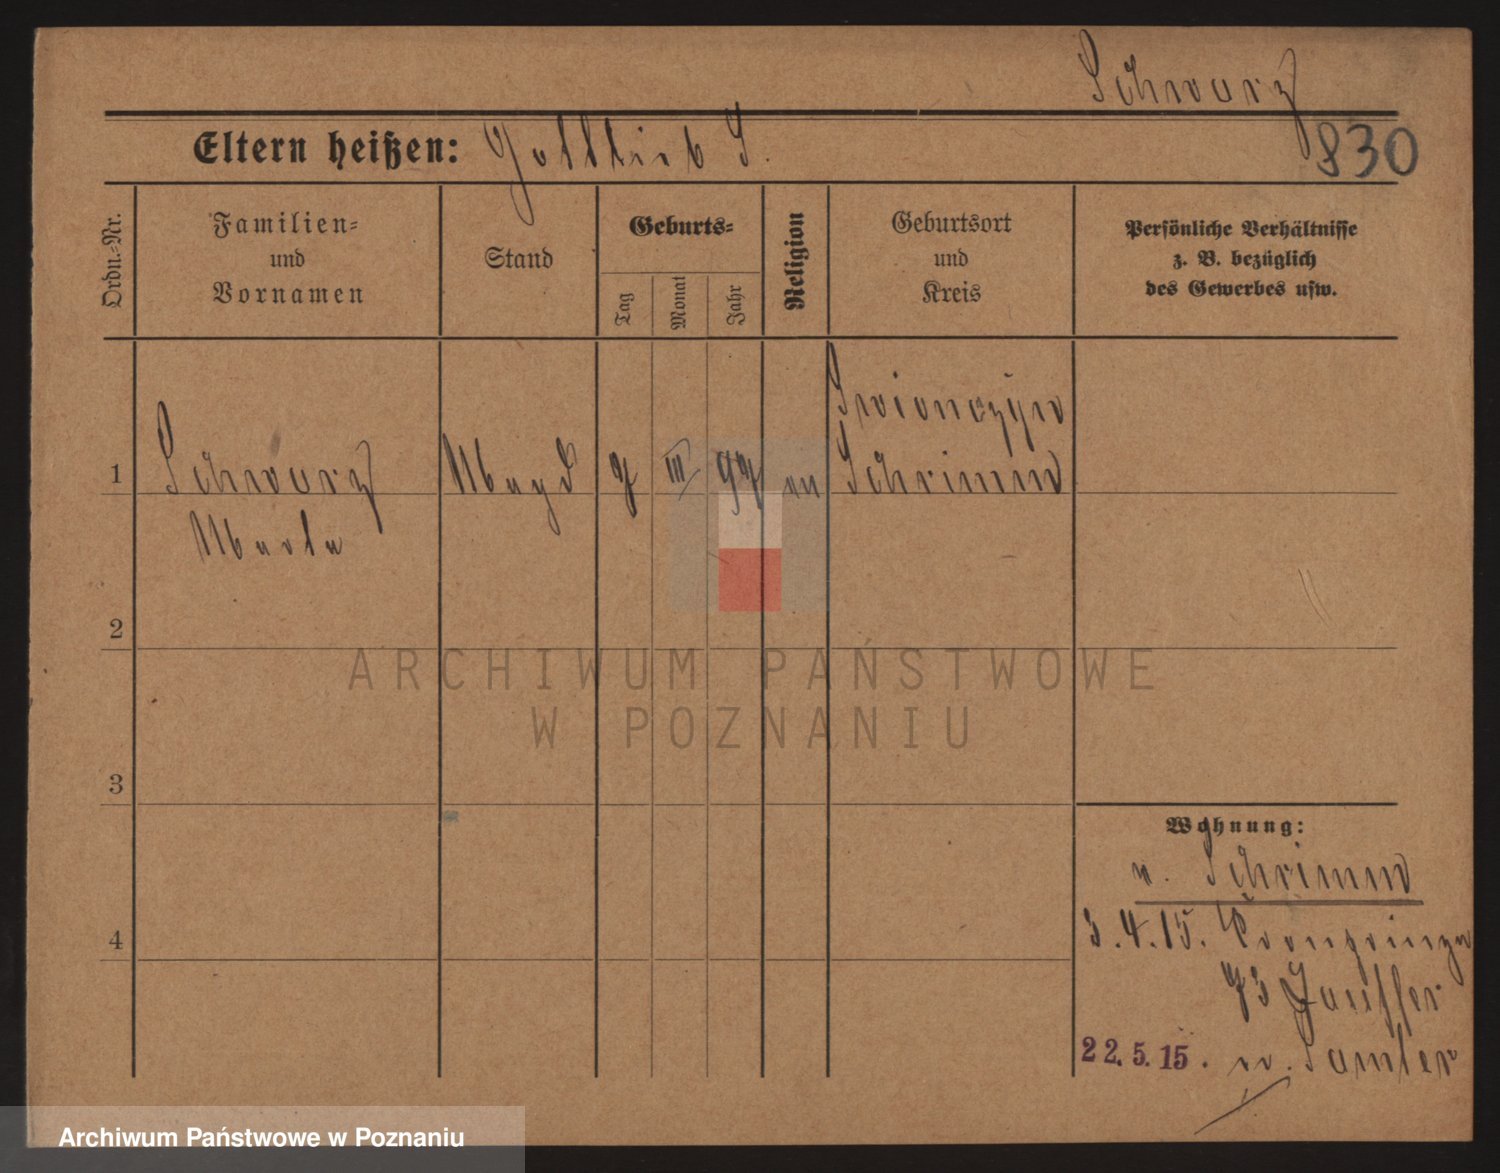 Schwarz
830
Eltern heißen: Gottlieb S.
Ordn.-Nr.
Familien-
und
Vornamen
Stand
Geburts-
Tag
Monat
Jahr
Religion
Geburtsort
und
Kreis
Persönliche Verhältnisse
z. B. bezüglich
des Gewerbes usw.
1
Schwarz Magd III ev Schrimm
2
ARCHIWUM PAŃSTWOWE
W POZNANIU
3
Wohnung:
v. Schrimm
4
3.4.15. Kronprinzen
22.5.15.
Archiwum Państwowe w Poznaniu